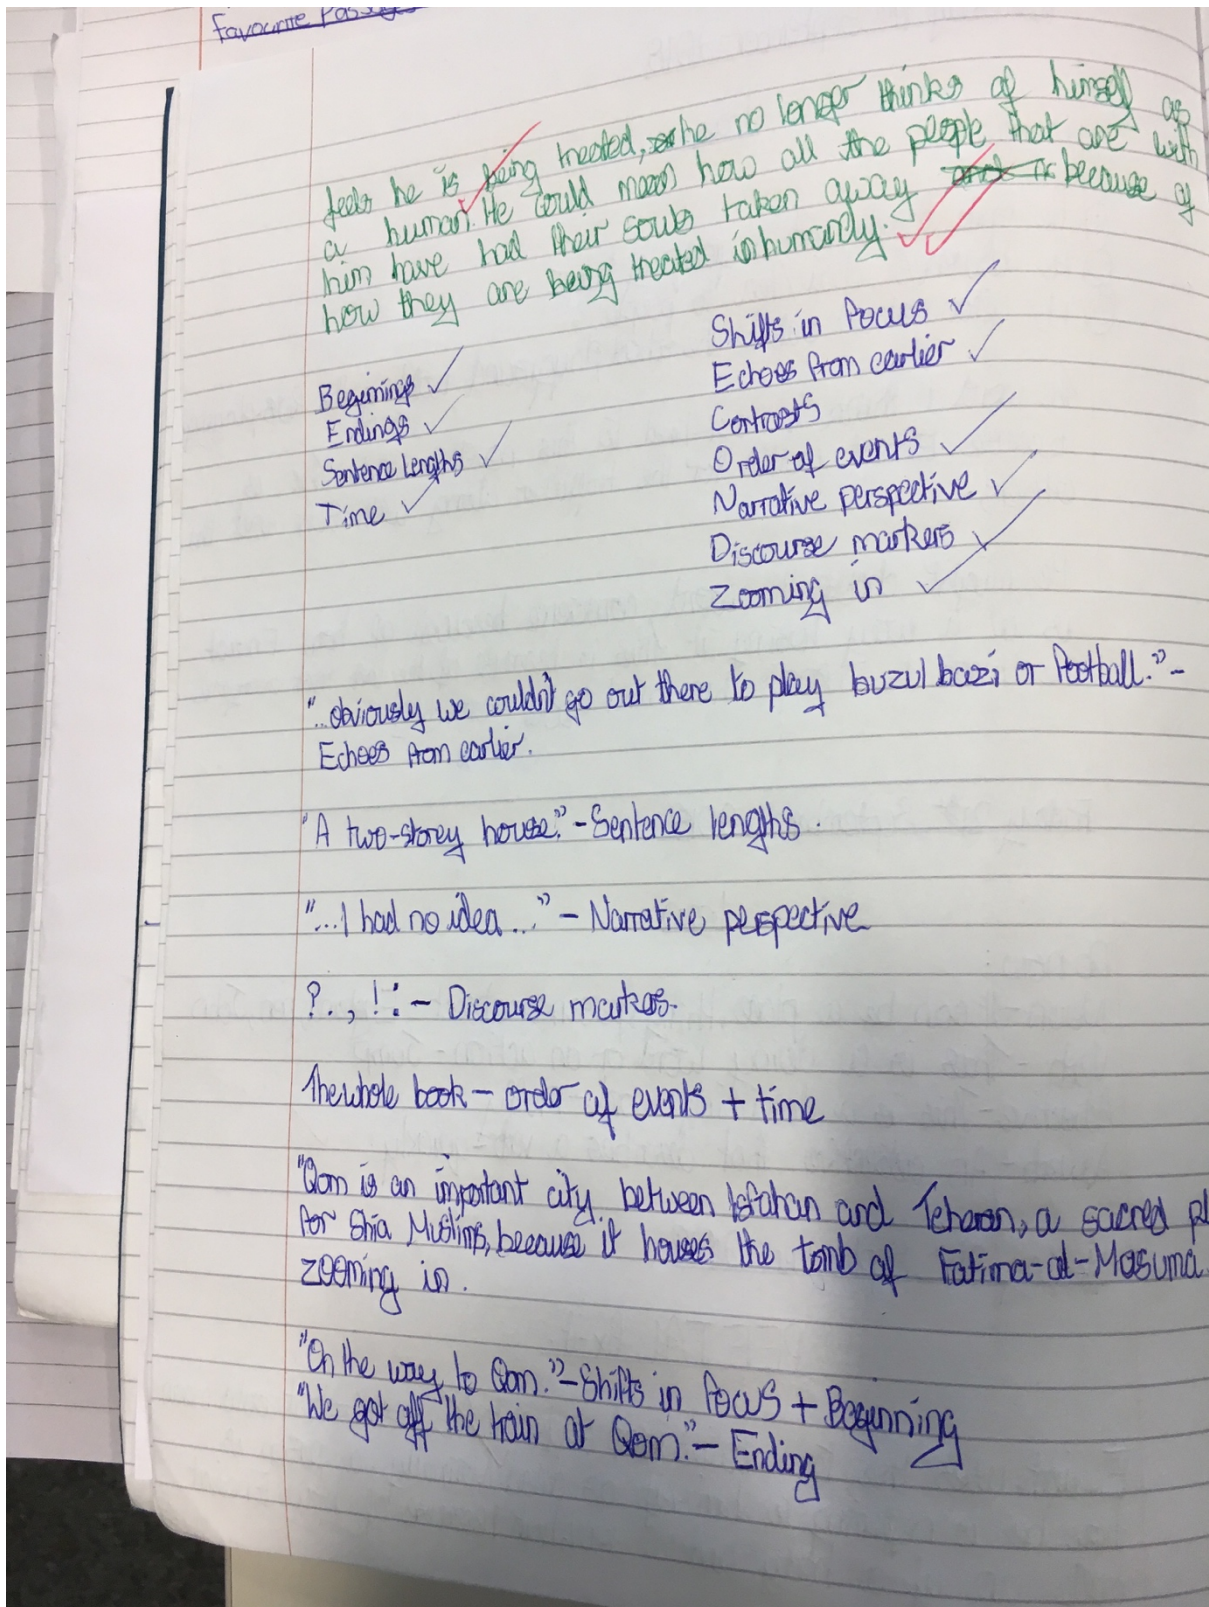 Favourite Passage
feels he is being treated, he no longer thinks of himself as
a human. He could mean how all the people that are with
him have had their souls taken away because of
how they are being treated inhumanly.
Beginnings ✓
Endings ✓
Sentence lengths ✓
Time ✓
Shifts in focus ✓
Echoes from earlier ✓
Contrasts
Order of events ✓
Narrative perspective ✓
Discourse markers ✓
Zooming in ✓
"...obviously we couldn't go out there to play buzul bazi or football." -
Echoes from earlier.
"A two-storey house." - Sentence lengths.
"...I had no idea..." - Narrative perspective
? . , ! : - Discourse markers.
The whole book - order of events + time
"Qom is an important city between Isfahan and Teheran, a sacred pl
for Shia Muslims, because it houses the tomb of Fatima-al-Masuma
zooming in.
"On the way to Qom." - Shifts in focus + Beginning
"We got off the train at Qom." - Ending